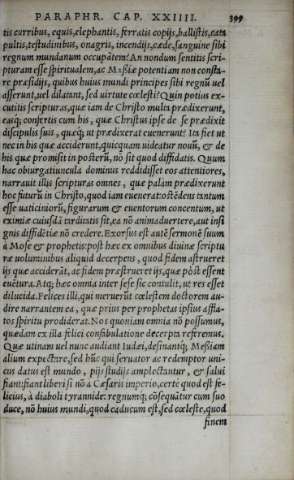 PARAPHR. CAP. XXIIII. 399
tis curribus, equis, elephantis, ferratis copijs, ballistis, cata
pultis, testudinibus, onagris, incendijs, cæde, sanguine sibi
regnum mundanum occupātem? An nondum sentitis scri-
pturam esse spiritualem, ac Meßiæ potentiam non consta-
re præsidijs, quibus huius mundi principes sibi regnū uel
asserunt, uel dilatant, sed uirtute cœlesti? Quin potius ex-
cutitis scripturas, quæ iam de Christo multa prædixerunt,
easq́; confertis cum his, quæ Christus ipse de se prædixit
discipulis suis, quæq́; ut prædixerat euenerunt? Ita fiet ut
nec in his quæ acciderunt, quicquam uideatur nouū, & de
his quæ promisit in posterū, nō sit quod diffidatis. Quum
hac obiurgatiuncula dominus reddidisset eos attentiores,
narrauit illis scripturas omnes, quæ palàm prædixerunt
hoc futurū in Christo, quod iam euenerat: ostēdens tantum
esse uaticiniorū, figurarum & euentorum concentum, ut
eximiæ cuiusdā tarditatis sit, ea nō animaduertere, aut insi
gnis diffidētiæ nō credere. Exorsus est autē sermonē suum
à Mose & prophetis: post hæc ex omnibus diuinæ scriptu
ræ uoluminibus aliquid decerpens, quod fidem astrueret
ijs quæ acciderāt, ac fidem præstrueret ijs, quæ pòst essent
euētura. Atq; hæc omnia inter sese sic contulit, ut res esset
dilucida. Felices illi, qui meruerūt cœlestem doctorem au-
dire narrantem ea, quæ prius per prophetas ipsius affla-
tos spiritu prodiderat. Nos quoniam omnia nō possumus,
quædam ex illa felici confabulatione decerpta referemus.
Quæ utinam uel nunc audiant Iudæi, desinantq́; Meßiam
alium expectare, sed hūc qui seruator ac redemptor uni-
cus datus est mundo, pijs studijs amplectantur, & salui
fiant: fiant liberi si nō à Cæsaris imperio, certè quod est fe-
licius, à diaboli tyrannide: regnumq́; cōsequātur cum suo
duce, nō huius mundi, quod caducum est, sed cœleste, quod
finem